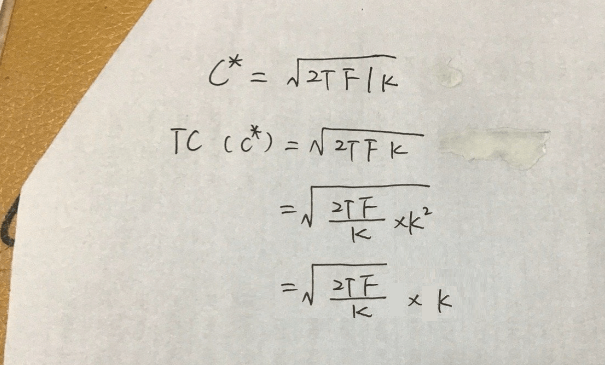 C* = √2TF/K
TC (C*) = √2TFK
= √2TF/K ×K²
= √2TF/K × K